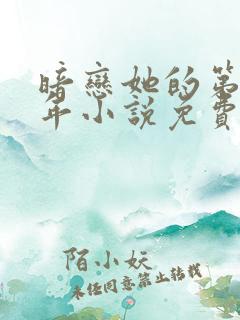 暗戀她的第
年小說免費
陌小妖
未任同意禁止轉載